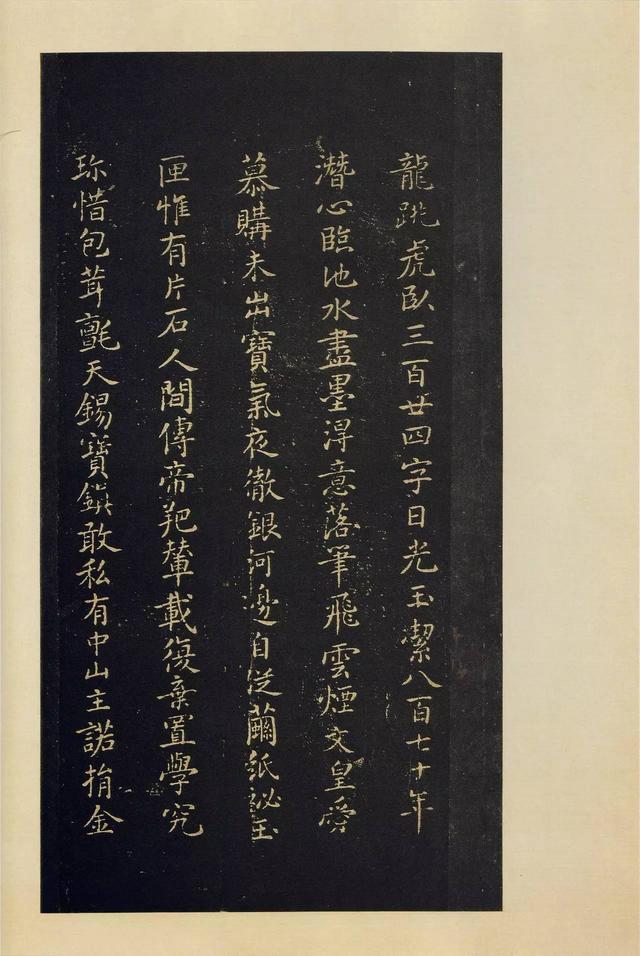 龍跳虎臥三百廿四字日光玉潔八百七十年
潛心臨池水盡墨淂意落筆飛雲煙文皇愛
慕購未出寶氣夜徹銀河邊自從繭紙祕玉
匣惟有片石人間傳帝羓輦載復棄置學究
珎惜包茸氈天錫寶鎮敢私有中山主諾捐金